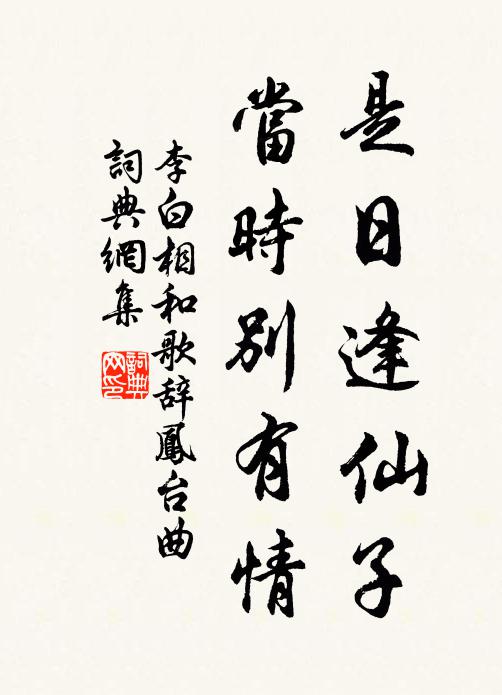 是日逢仙子
當時別有情
李白相和歌辞鳳台曲
詞典網集
詞典
网印